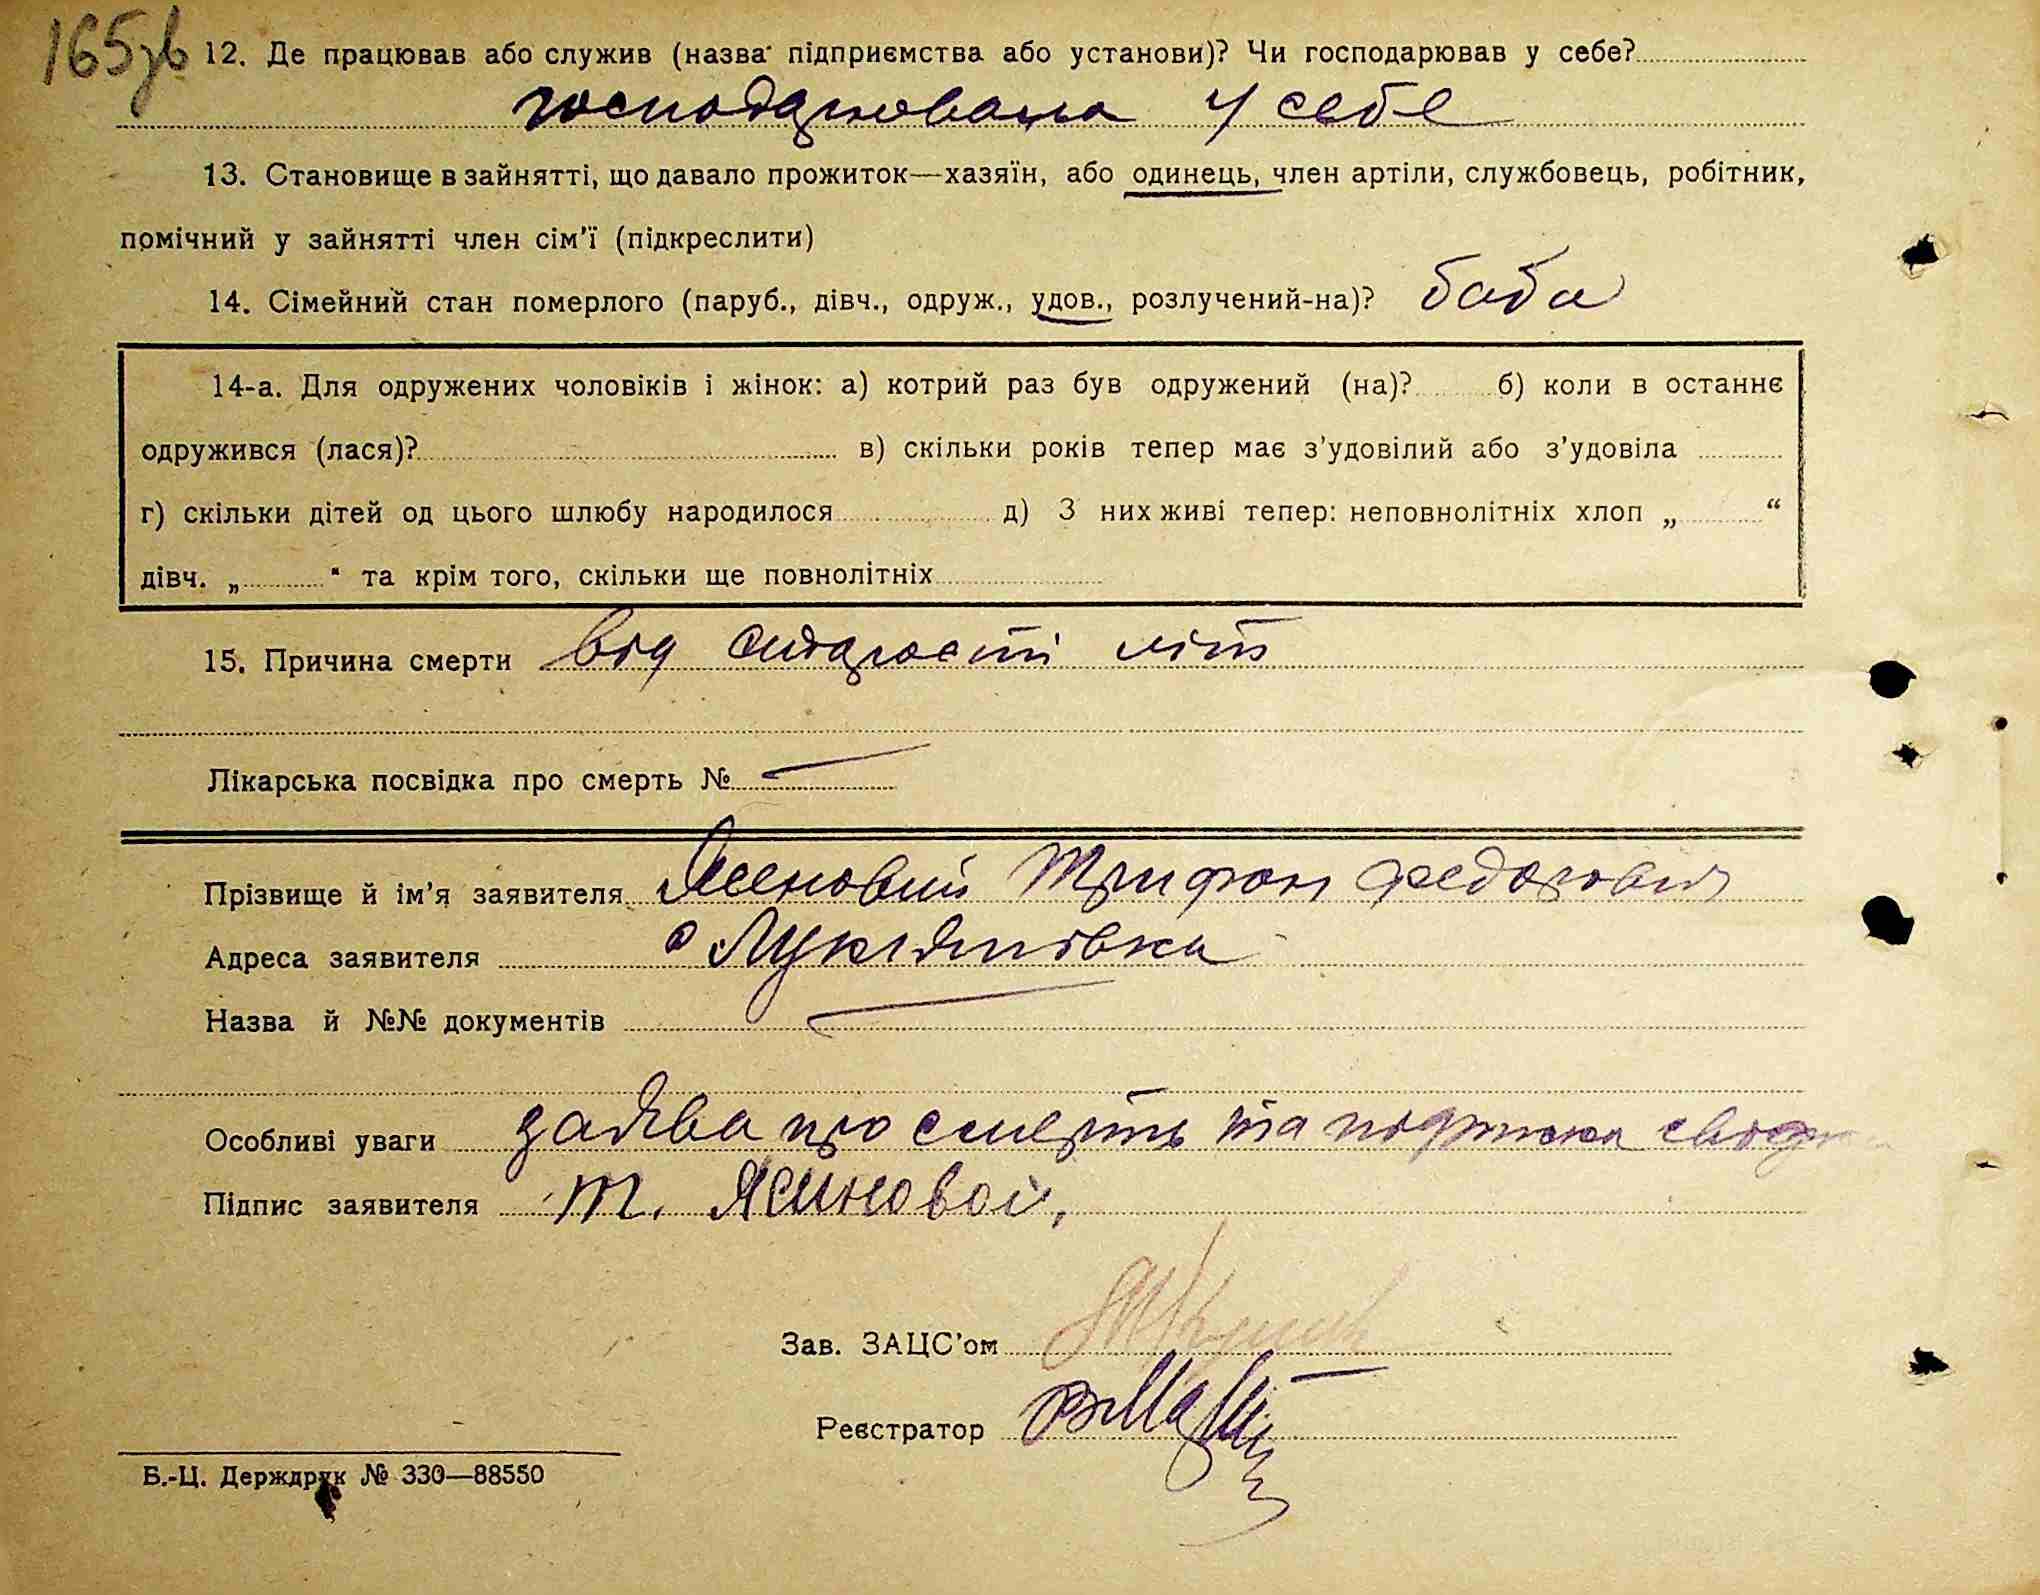 165зв
12. Де працював або служив (назва підприємства або установи)? Чи господарював у себе?
господарювала у себе
13. Становище в зайнятті, що давало прожиток—хазяїн, або одинець, член артіли, службовець, робітник,
помічний у зайнятті член сім'ї (підкреслити)
14. Сімейний стан померлого (паруб., дівч., одруж., удов., розлучений-на)? баба
14-а. Для одружених чоловіків і жінок: а) котрий раз був одружений (на)? б) коли в останнє
одружився (лася)? в) скільки років тепер має з'удовілий або з'удовіла
г) скільки дітей од цього шлюбу народилося д) З них живі тепер: неповнолітніх хлоп „ “
дівч. „ “ та крім того, скільки ще повнолітніх
15. Причина смерти від старости літ
Лікарська посвідка про смерть №
Прізвище й ім'я заявителя Ясеновий Трифон Федорович
Адреса заявителя с Лукіянівка
Назва й №№ документів
Особливі уваги заява про смерть та
Підпис заявителя Т. Ясиновой,
Зав. ЗАЦС'ом
Реєстратор
Б.-Ц. Держдрук № 330—88550